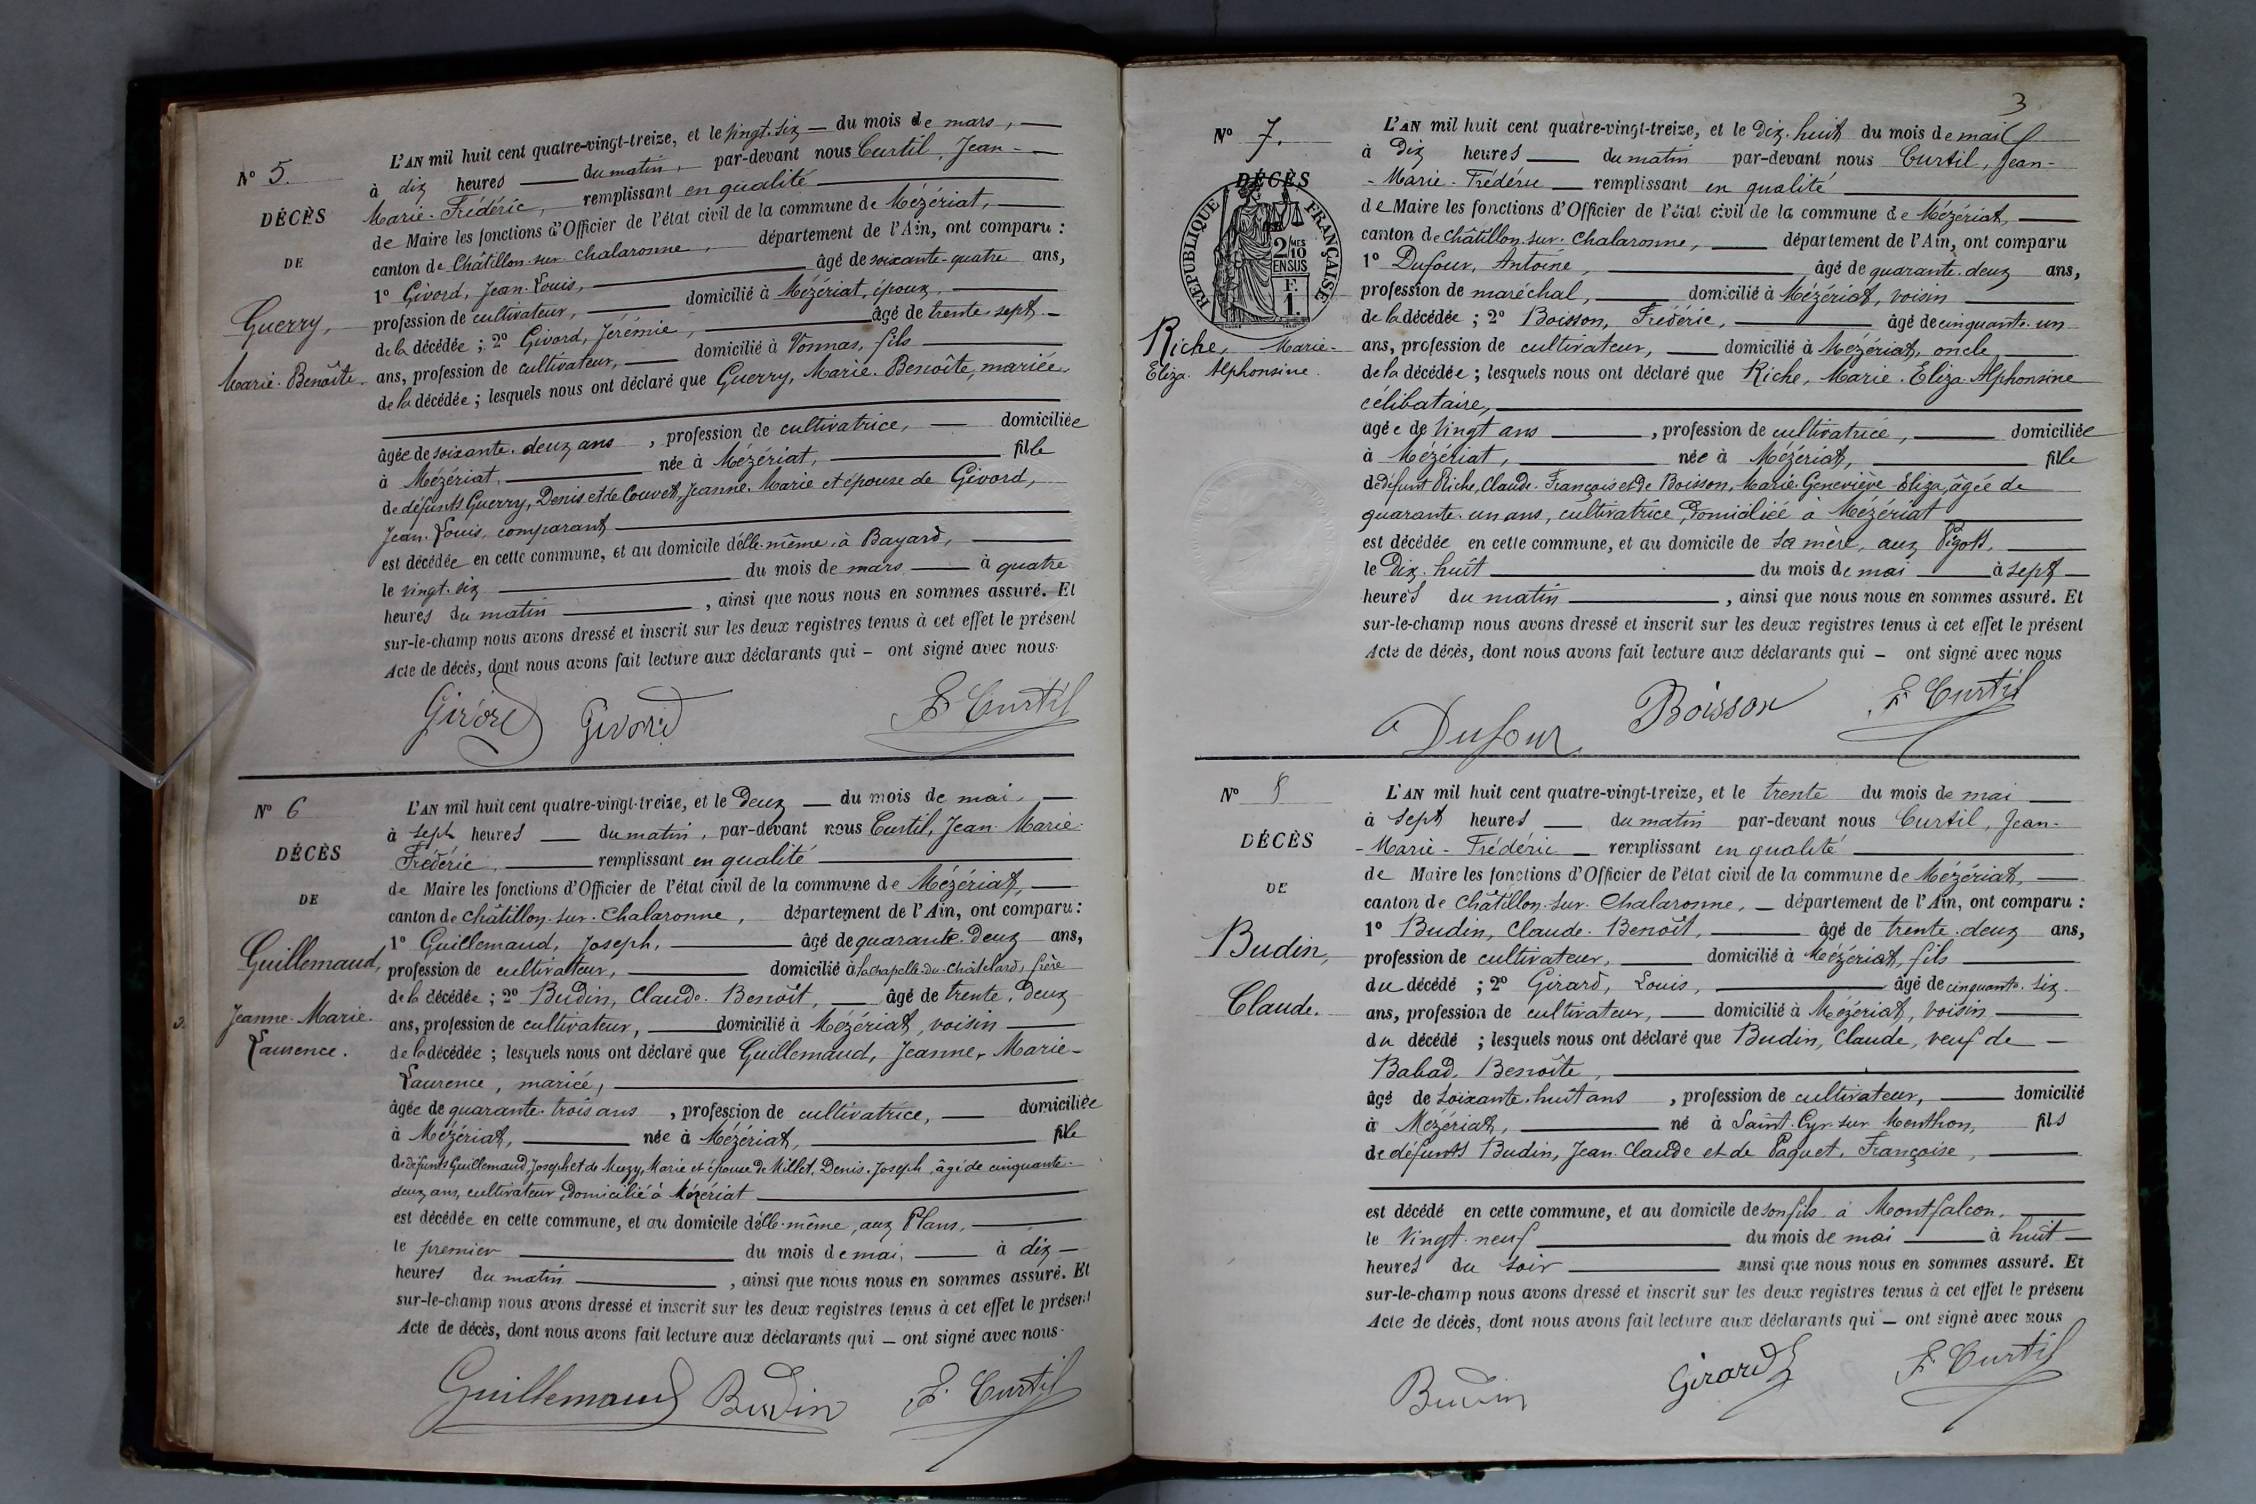 N° 5.
DÉCÈS
DE
Guerry,
Marie-Benoîte.
L'AN mil huit cent quatre-vingt-treize, et le vingt-six — du mois de mars, —
à dix heures — du matin, par-devant nous Curtil, Jean-
Marie-Frédéric, remplissant en qualité
de Maire les fonctions d'Officier de l'état civil de la commune de Mézériat,
canton de Châtillon-sur-Chalaronne, département de l'Ain, ont comparu :
1° Givord, Jean-Louis, âgé de soixante-quatre ans,
profession de cultivateur, domicilié à Mézériat, époux,
de la décédée ; 2° Givord, Jérémie, âgé de trente-sept
ans, profession de cultivateur, domicilié à Vonnas, fils
de la décédée ; lesquels nous ont déclaré que Guerry, Marie-Benoîte, mariée,
âgée de soixante-deux ans, profession de cultivatrice, domiciliée
à Mézériat, née à Mézériat, fille
de défunts Guerry, Denis et de Couvet, Jeanne-Marie et épouse de Givord,
Jean-Louis, comparant
est décédée en cette commune, et au domicile d'elle-même, à Bayard,
le vingt-six du mois de mars à quatre
heures du matin, ainsi que nous nous en sommes assuré. Et
sur-le-champ nous avons dressé et inscrit sur les deux registres tenus à cet effet le présent
Acte de décès, dont nous avons fait lecture aux déclarants qui — ont signé avec nous.
Givord Givord F. Curtil
N° 6
DÉCÈS
DE
Guillemaud,
Jeanne-Marie-
Laurence.
L'AN mil huit cent quatre-vingt-treize, et le deux — du mois de mai, —
à sept heures — du matin, par-devant nous Curtil, Jean-Marie-
Frédéric, remplissant en qualité
de Maire les fonctions d'Officier de l'état civil de la commune de Mézériat,
canton de Châtillon-sur-Chalaronne, département de l'Ain, ont comparu :
1° Guillemaud, Joseph, âgé de quarante-deux ans,
profession de cultivateur, domicilié à la chapelle-du-chatelard, frère
de la décédée ; 2° Budin, Claude-Benoît, âgé de trente-deux
ans, profession de cultivateur, domicilié à Mézériat, voisin
de la décédée ; lesquels nous ont déclaré que Guillemaud, Jeanne-Marie-
Laurence, mariée,
âgée de quarante-trois ans, profession de cultivatrice, domiciliée
à Mézériat, née à Mézériat, fille
de défunts Guillemaud, Joseph et de Muzy, Marie et épouse de Millet, Denis-Joseph, âgé de cinquante-
deux ans, cultivateur, domicilié à Mézériat
est décédée en cette commune, et au domicile d'elle-même, aux Plans,
le premier du mois de mai, à dix
heures du matin, ainsi que nous nous en sommes assuré. Et
sur-le-champ nous avons dressé et inscrit sur les deux registres tenus à cet effet le présent
Acte de décès, dont nous avons fait lecture aux déclarants qui — ont signé avec nous.
Guillemaud Budin F. Curtil
3
N° 7.
DÉCÈS
RÉPUBLIQUE FRANÇAISE
2/10 MES
EN SUS
F.
1.
Riche, Marie-
Eliza-Alphonsine.
L'AN mil huit cent quatre-vingt-treize, et le dix-huit du mois de mai
à dix heures — du matin par-devant nous Curtil, Jean-
-Marie-Frédéric — remplissant en qualité
de Maire les fonctions d'Officier de l'état civil de la commune de Mézériat,
canton de Châtillon-sur-Chalaronne, département de l'Ain, ont comparu
1° Dufour, Antoine, âgé de quarante-deux ans,
profession de maréchal, domicilié à Mézériat, voisin
de la décédée ; 2° Boisson, Frédéric, âgé de cinquante-un
ans, profession de cultivateur, domicilié à Mézériat, oncle
de la décédée ; lesquels nous ont déclaré que Riche, Marie-Eliza-Alphonsine
célibataire,
âgée de vingt ans, profession de cultivatrice, domiciliée
à Mézériat, née à Mézériat, fille
de défunt Riche, Claude-François et de Boisson, Marie-Geneviève-Eliza, âgée de
quarante-un ans, cultivatrice, domiciliée à Mézériat
est décédée en cette commune, et au domicile de sa mère, aux
le dix-huit du mois de mai à sept
heures du matin, ainsi que nous nous en sommes assuré. Et
sur-le-champ nous avons dressé et inscrit sur les deux registres tenus à cet effet le présent
Acte de décès, dont nous avons fait lecture aux déclarants qui — ont signé avec nous
Dufour Boisson F. Curtil
N° 8
DÉCÈS
DE
Budin,
Claude.
L'AN mil huit cent quatre-vingt-treize, et le trente du mois de mai
à sept heures — du matin par-devant nous Curtil, Jean-
-Marie-Frédéric — remplissant en qualité
de Maire les fonctions d'Officier de l'état civil de la commune de Mézériat,
canton de Châtillon-sur-Chalaronne, — département de l'Ain, ont comparu :
1° Budin, Claude-Benoît, âgé de trente-deux ans,
profession de cultivateur, domicilié à Mézériat, fils
du décédé ; 2° Girard, Louis, âgé de cinquante-six
ans, profession de cultivateur, domicilié à Mézériat, voisin
du décédé ; lesquels nous ont déclaré que Budin, Claude, veuf de
Babad, Benoîte,
âgé de soixante-huit ans, profession de cultivateur, domicilié
à Mézériat, né à Saint-Cyr-sur-Menthon, fils
de défunts Budin, Jean-Claude et de Paquet, Françoise,
est décédé en cette commune, et au domicile de son fils à Montfalcon,
le vingt-neuf du mois de mai à huit
heures du soir ainsi que nous nous en sommes assuré. Et
sur-le-champ nous avons dressé et inscrit sur les deux registres tenus à cet effet le présent
Acte de décès, dont nous avons fait lecture aux déclarants qui — ont signé avec nous
Budin Girard F. Curtil